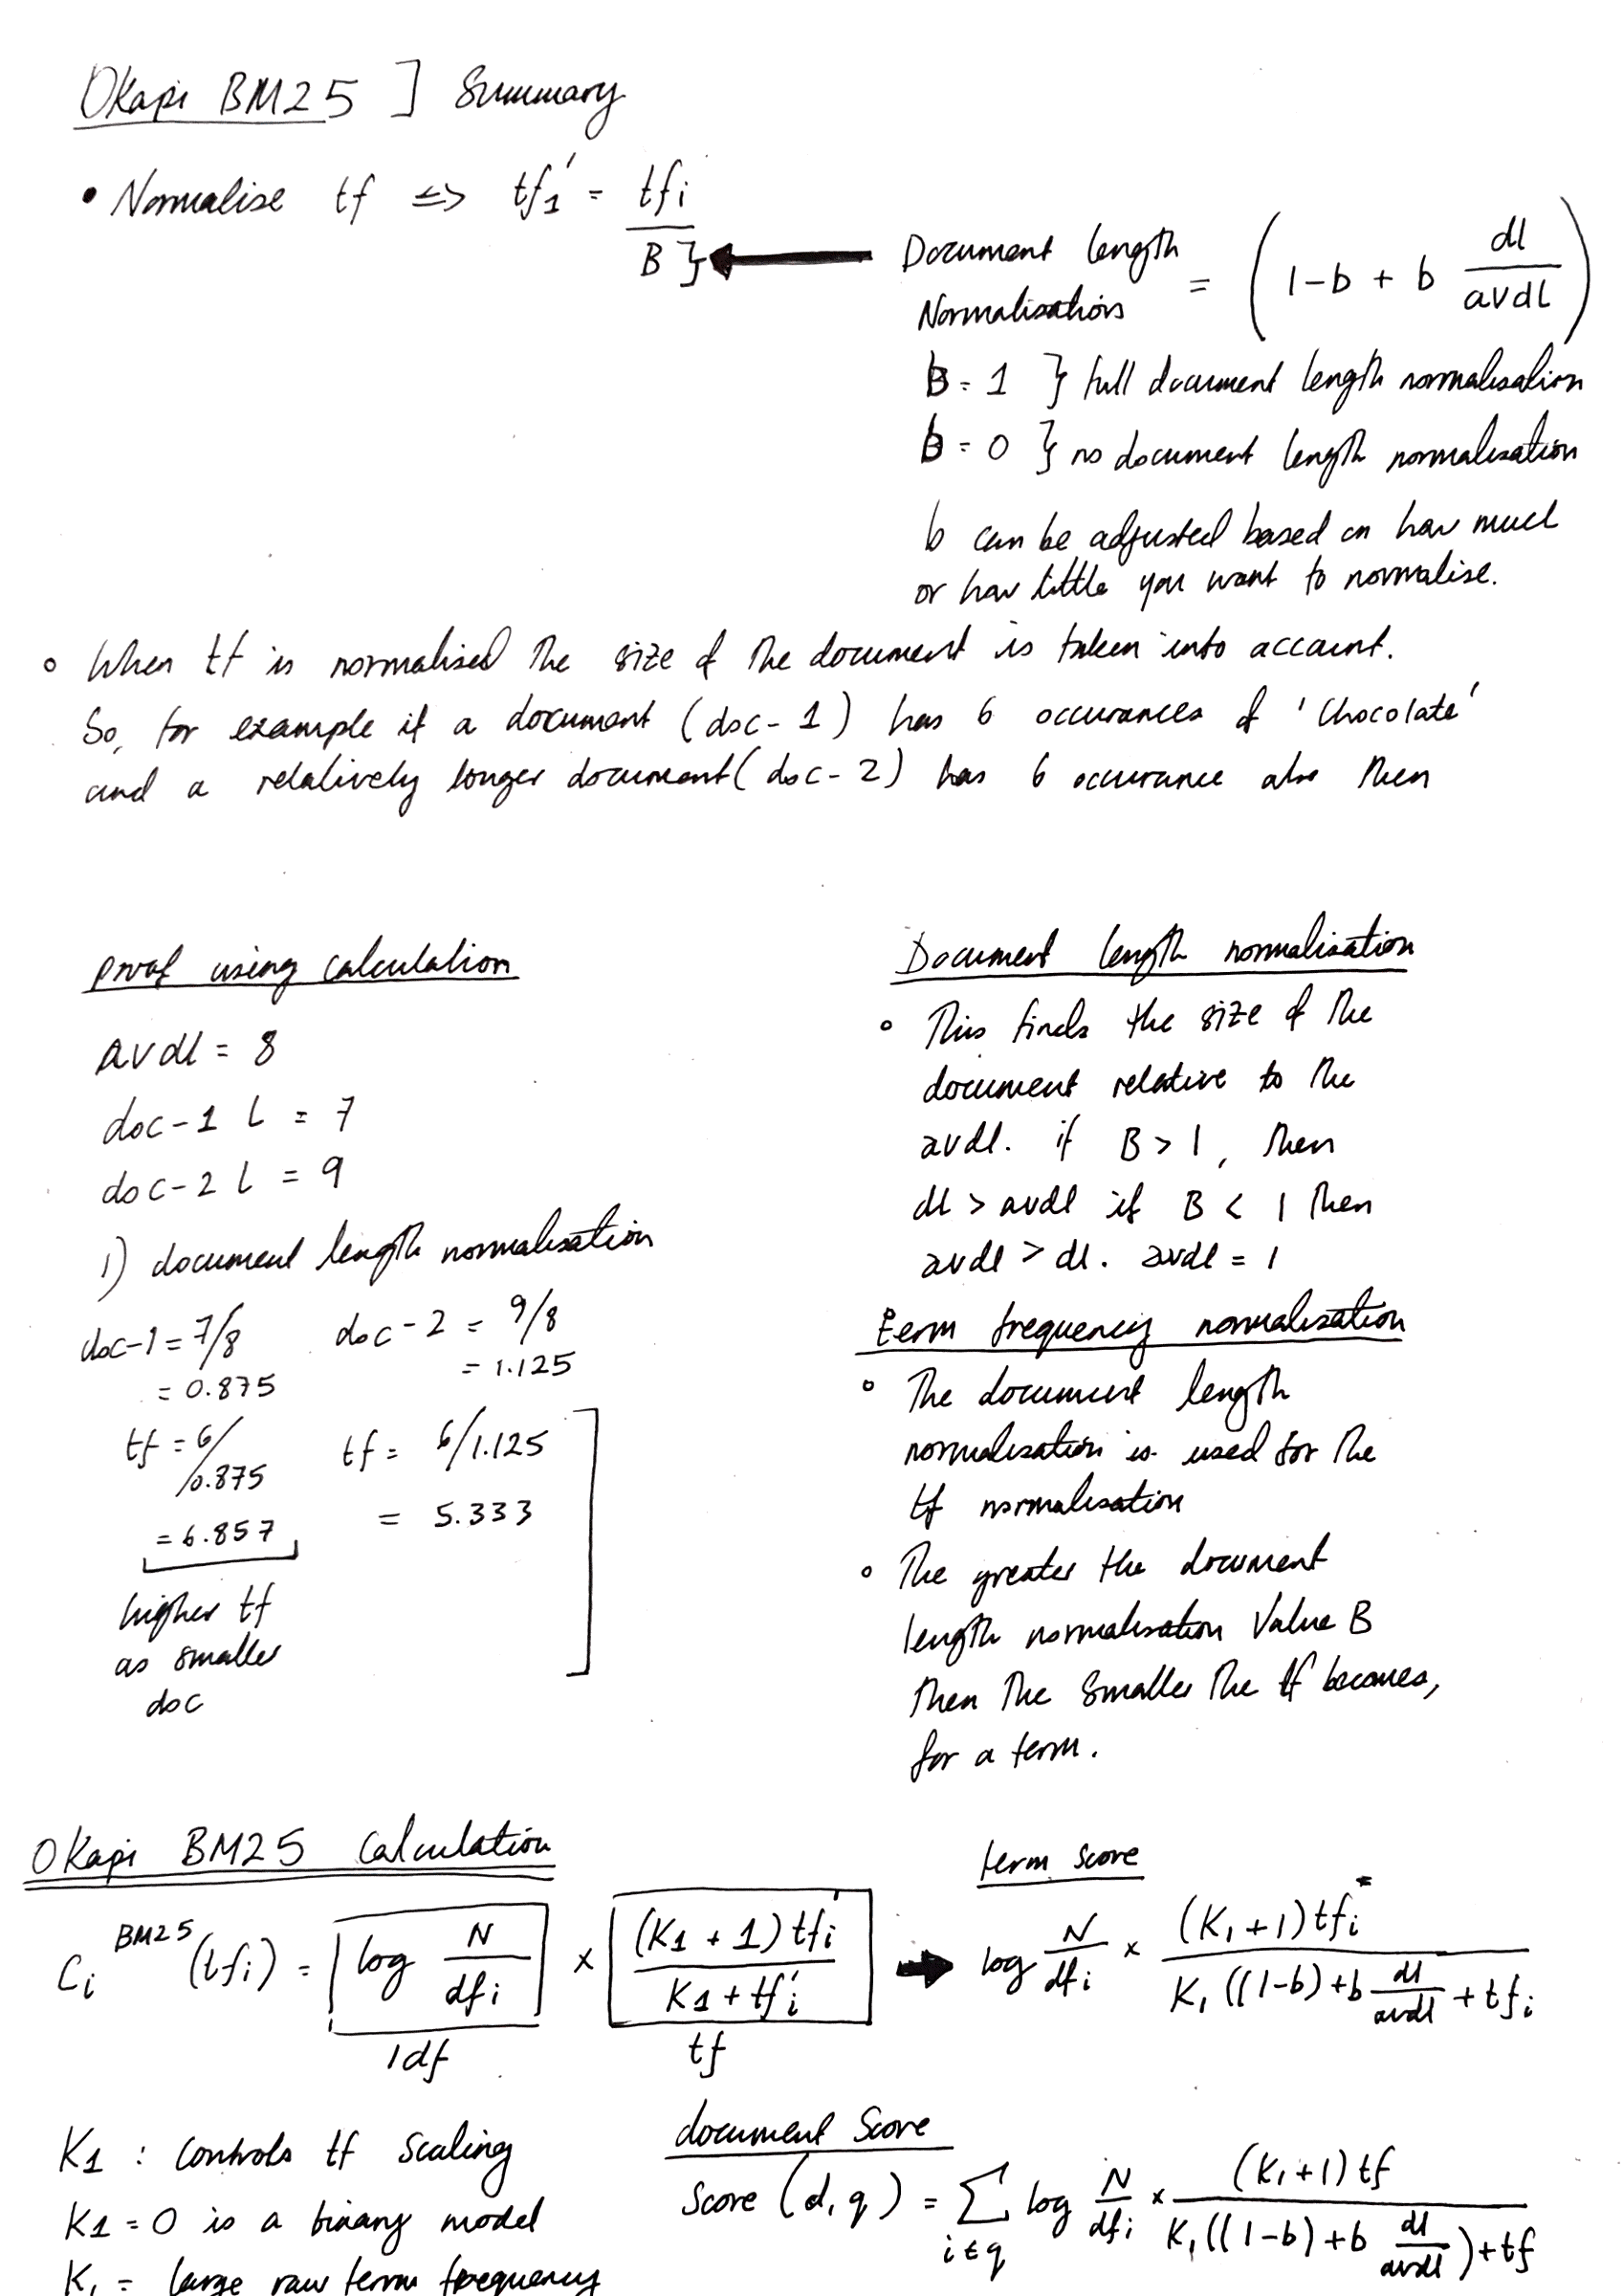 Okapi BM25 ] Summary
• Normalise tf <=> tf1' = tfi / B }
Document length Normalisation = (1-b + b dl/avdl)
b = 1 } full document length normalisation
b = 0 } no document length normalisation
b can be adjusted based on how much
or how little you want to normalise.
◦ When tf is normalised the size of the document is taken into account.
So, for example if a document (doc-1) has 6 occurances of 'Chocolate'
and a relatively longer document (doc-2) has 6 occurance also then
proof using calculation
avdl = 8
doc-1 L = 7
doc-2 L = 9
1) document length normalisation
doc-1 = 7/8
= 0.875
doc-2 = 9/8
= 1.125
tf = 6/0.875
= 6.857
higher tf
as smaller
doc
tf = 6/1.125
= 5.333
Document length normalisation
◦ This finds the size of the
document relative to the
avdl. if B > 1, then
dl > avdl if B < 1 then
avdl > dl. avdl = 1
term frequency normalisation
◦ The document length
normalisation is used for the
tf normalisation
◦ The greater the document
length normalisation Value B
then the smaller the tf becomes,
for a term.
Okapi BM25 Calculation
Ci BM25 (tfi) = log N/dfi × (K1 + 1) tfi' / K1 + tfi'
idf
tf
term score
log N/dfi × (K1+1) tfi / K1((1-b)+b dl/avdl + tfi
K1 : Controls tf Scaling
K1 = 0 is a binary model
K1 = large raw term frequency
document Score
Score (d, q) = ∑ i∈q log N/dfi × (K1+1) tf / K1((1-b)+b dl/avdl)+tf